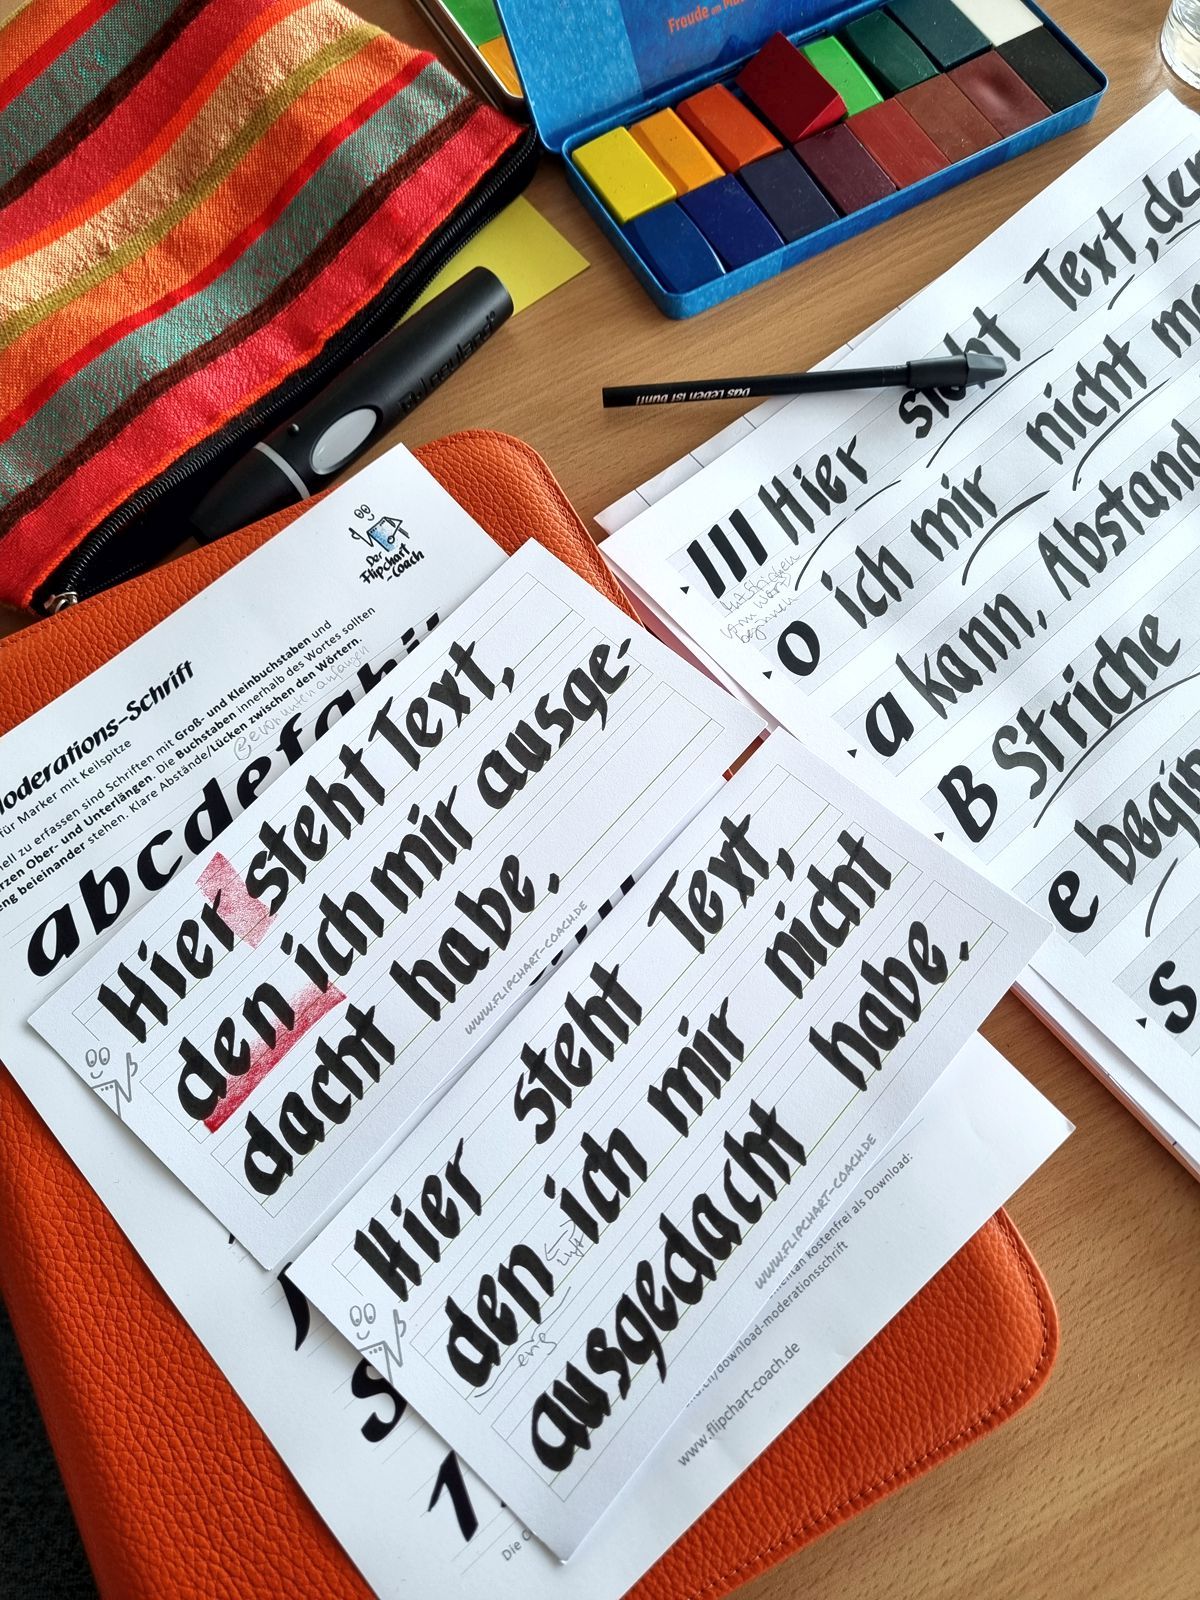 Freude am
neuland
Das Leben ist bunt!
Der
Flipchart
-Coach
Moderations-Schrift
für Marker mit Keilspitze
zu erfassen sind Schriften mit Groß- und Kleinbuchstaben und
Ober- und Unterlängen. Die Buchstaben innerhalb des Wortes sollten
eng beieinander stehen. Klare Abstände/Lücken zwischen den Wörtern.
unten anfangen
abcdefghij
Hier steht Text,
den ich mir ausge-
dacht habe.
WWW.FLIPCHART-COACH.DE
Hier steht Text,
den ich mir nicht
ausgedacht habe.
Luft
eng
WWW.FLIPCHART-COACH.DE
III Hier steht Text, den
o ich mir nicht
a kann, Abstand
B Striche
e
s
mit Strichen
vom Wort
beginnen
s
1
kostenfrei als Download:
/download-moderationsschrift
www.flipchart-coach.de
Die